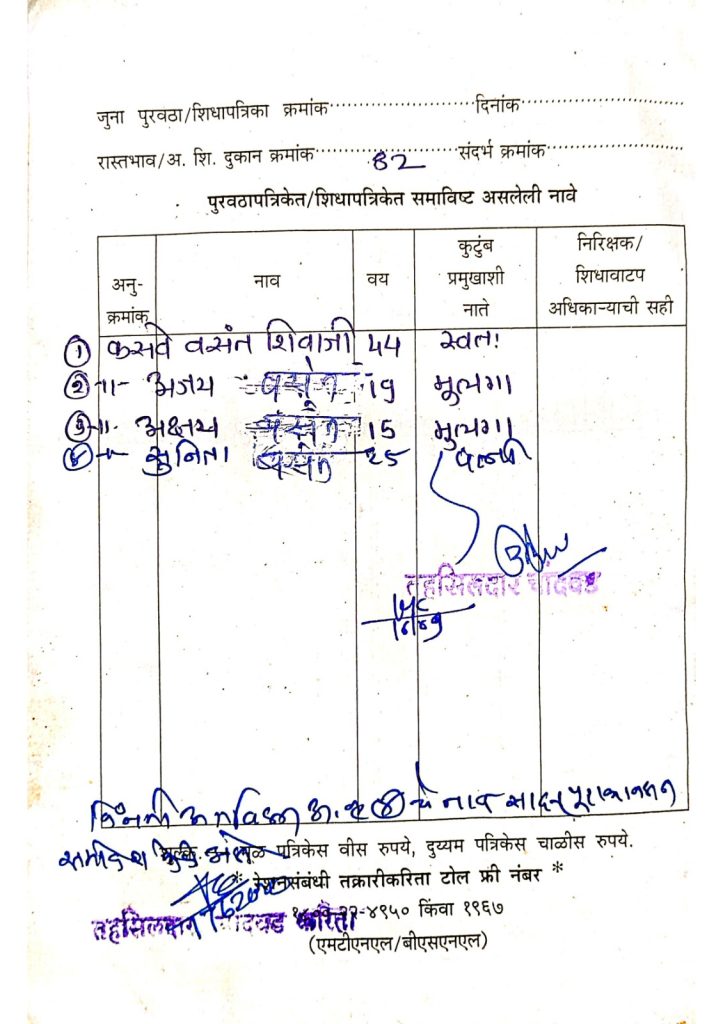 जुना पुरवठा/शिधापत्रिका क्रमांक.................दिनांक.................
रास्तभाव/अ. शि. दुकान क्रमांक.......82.......संदर्भ क्रमांक.................
पुरवठापत्रिकेत/शिधापत्रिकेत समाविष्ट असलेली नावे
अनु-क्रमांक नाव वय कुटुंब प्रमुखाशी नाते निरिक्षक/शिधावाटप अधिकाऱ्याची सही
① कसवे वसंत शिवाजी 44 स्वतः
② -॥- अजय वसंत 19 मूलगा
③ -॥- अक्षय वसंत 15 मुलगा
सुनिता वसंत पत्नी
तहसिलदार चांदवड
चे नाव
पत्रिकेस वीस रुपये, दुय्यम पत्रिकेस चाळीस रुपये.
* रेशनसंबंधी तक्रारीकरिता टोल फ्री नंबर *
२२-४९५० किंवा १९६७
तहसिलदार चांदवड करिता
(एमटीएनएल/बीएसएनएल)